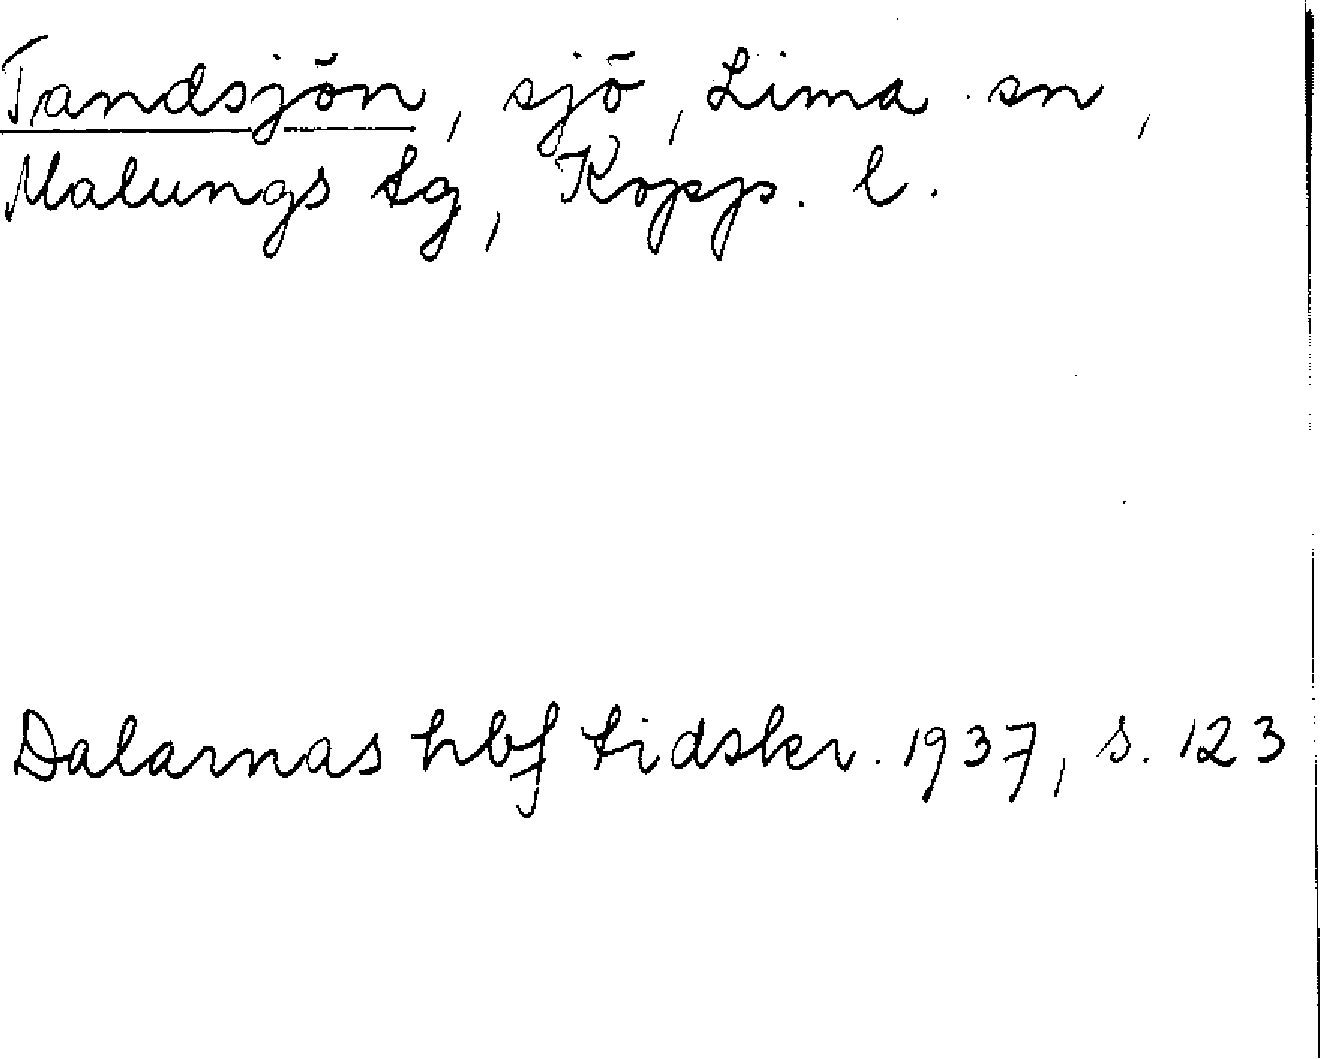 Tandsjön, sjö, Lima sn,
Malungs tg, Kopp. l.
Dalarnas hbf tidskr. 1937, s. 123